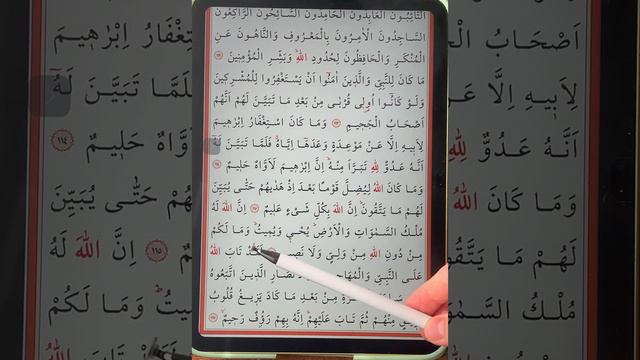 اَلتَّٓائِبُونَ الْعَابِدُونَ الْحَامِدُونَ السَّٓائِحُونَ الرَّاكِعُونَ
السَّاجِدُونَ الْاٰمِرُونَ بِالْمَعْرُوفِ وَالنَّاهُونَ عَنِ
الْمُنْكَرِ وَالْحَافِظُونَ لِحُدُودِ اللّٰهِ وَبَشِّرِ الْمُؤْمِنٖينَ ١١٢
مَا كَانَ لِلنَّبِيِّ وَالَّذٖينَ اٰمَنُٓوا اَنْ يَسْتَغْفِرُوا لِلْمُشْرِكٖينَ
وَلَوْ كَانُٓوا اُولٖي قُرْبٰى مِنْ بَعْدِ مَا تَبَيَّنَ لَهُمْ اَنَّهُمْ
اَصْحَابُ الْجَحٖيمِ ١١٣ وَمَا كَانَ اسْتِغْفَارُ اِبْرٰهٖيمَ
لِاَبٖيهِ اِلَّا عَنْ مَوْعِدَةٍ وَعَدَهَٓا اِيَّاهُ فَلَمَّا تَبَيَّنَ لَهُٓ
اَنَّهُ عَدُوٌّ لِلّٰهِ تَبَرَّاَ مِنْهُ اِنَّ اِبْرٰهٖيمَ لَاَوَّاهٌ حَلٖيمٌ ١١٤
وَمَا كَانَ اللّٰهُ لِيُضِلَّ قَوْمًا بَعْدَ اِذْ هَدٰيهُمْ حَتّٰى يُبَيِّنَ
لَهُمْ مَا يَتَّقُونَ اِنَّ اللّٰهَ بِكُلِّ شَيْءٍ عَلٖيمٌ ١١٥ اِنَّ اللّٰهَ لَهُ
مُلْكُ السَّمٰوَاتِ وَالْاَرْضِ يُحْيٖ وَيُمٖيتُ وَمَا لَكُمْ
مِنْ دُونِ اللّٰهِ مِنْ وَلِيٍّ وَلَا تَابَ اللّٰهُ
عَلَى النَّبِيِّ الَّذٖينَ اتَّبَعُوهُ
مِنْ بَعْدِ مَا كَادَ يَزٖيغُ قُلُوبُ
مِنْهُمْ ثُمَّ تَابَ عَلَيْهِمْ اِنَّهُ بِهِمْ رَؤُفٌ رَحٖيمٌ ١١٧